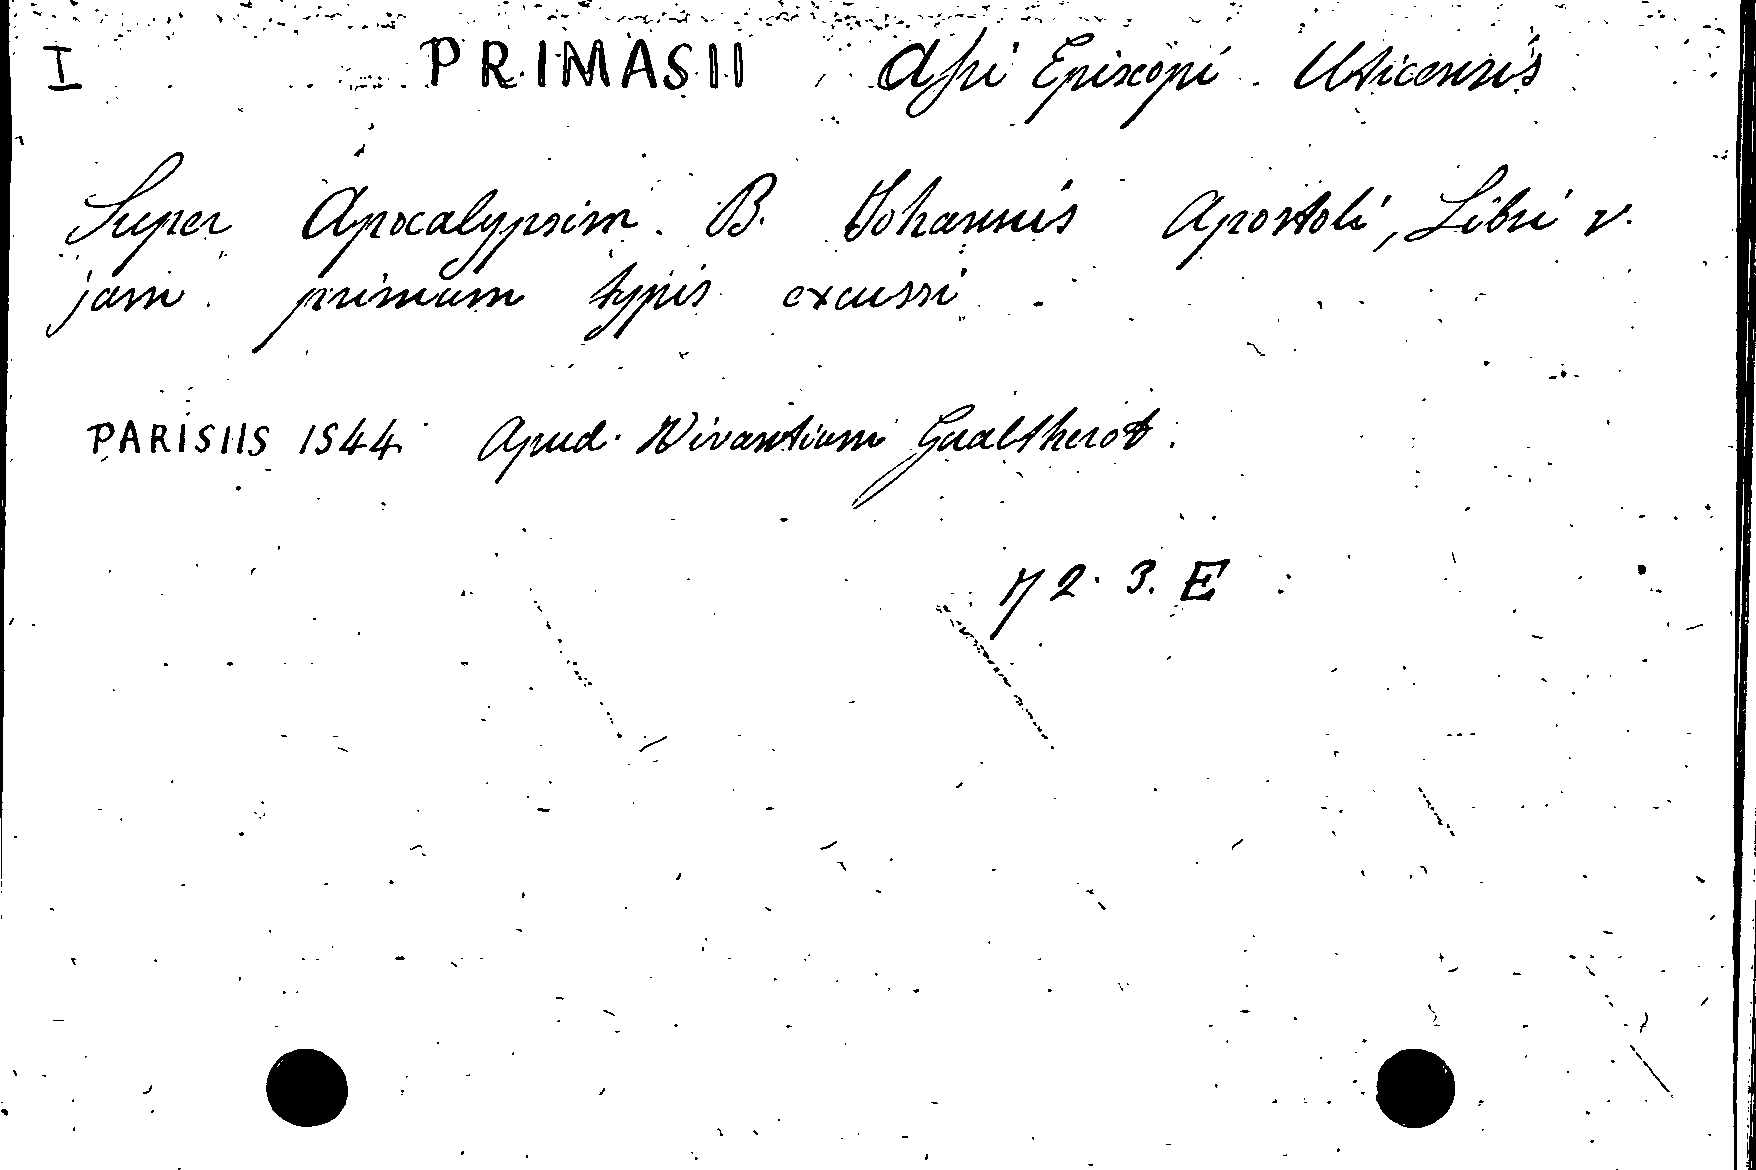 I PRIMASII Afri Episcopi Uticensis
Super Apocalypsim B. Johannis Apostoli, Libri v.
jam primum typis excussi
PARISIIS 1544 Apud Vivantium Gaultherot.
72.3.E